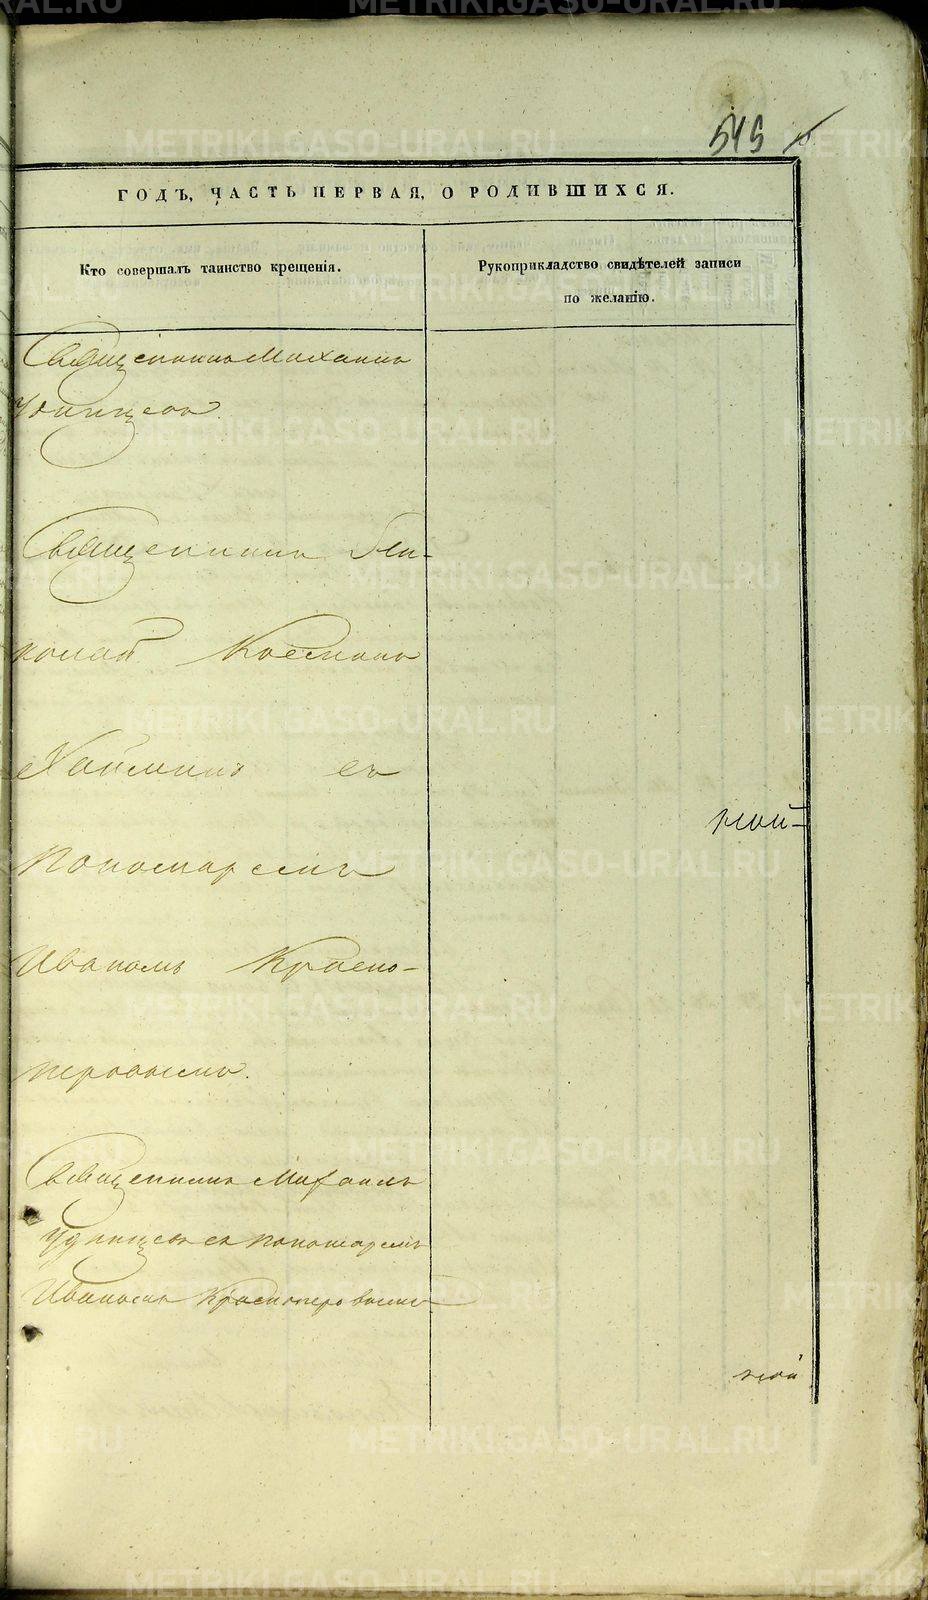 545
ГОДЪ, ЧАСТЬ ПЕРВАЯ, О РОДИВШИХСЯ.
Кто совершалъ таинство крещенія.
Рукоприкладство свидѣтелей записи
по желанію.
Священникъ Михаилъ
Удинцевъ.
Священникъ Ни-
колай Косминъ
Хайминъ съ
Пономаремъ
Иваномъ Красно-
перовымъ.
Священникъ Михаилъ
Удинцевъ съ пономаремъ
Иваномъ Красноперовымъ
METRIKI.GASO-URAL.RU